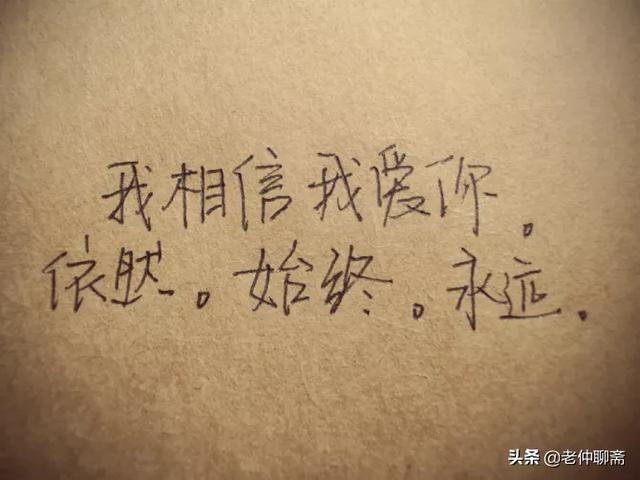 我相信我爱你。
依然。始终。永远。
头条 @老仲聊斋